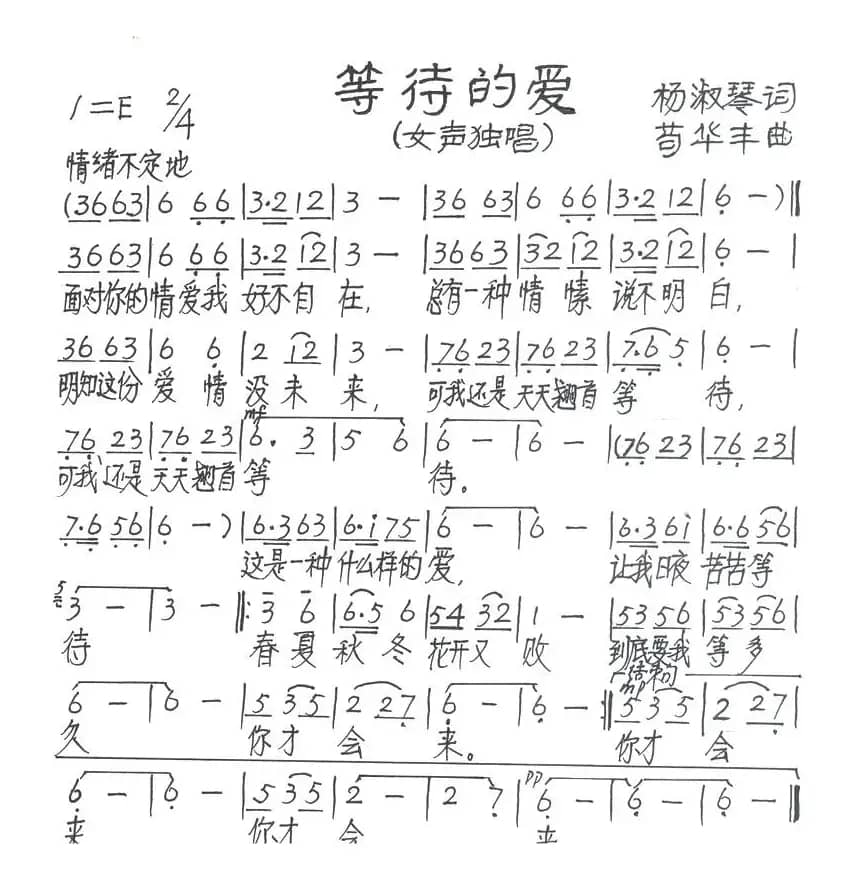 等待的爱
1=E 2/4
(女声独唱)
杨淑琴词
苟华丰曲
情绪不定地
(36 63|6 6 6|3·2 12|3 —|36 63|6 6 6|3·2 12|6 —)‖
36 63|6 6 6|3·2 12|3 —|36 63|32 12|3·2 12|6 —|
面对你的情爱我 好不自 在, 总有一种 情 愫 说不明 白,
36 63|6 6|2 12|3 —|76 23|76 23|7·6 5|6 —|
明知这份 爱 情 没未 来, 可我还是 天天翘首 等 待,
mf
76 23|76 23|6· 3|5 6|6 —|6 —|(76 23|76 23|
可我还是 天天翘首 等 待。
7·6 56|6 —)|6·3 63|6·i 75|6 —|6 —|6·3 6i|6·6 56|
这是一种 什么样的 爱, 让我日夜 苦苦等
3 —|3 —‖:3 6|6·5 6|54 32|1 —|53 56|53 56|
待 春 夏 秋 冬 花开又 败 到底要我 等 多
结束句
mp
6 —|6 —|5 35|2 27|6 —|6 —:‖5 35|2 27|
久 你才 会 来。 你才 会
pp
6 —|6 —|5 35|2 —|2 7|6 —|6 —|6 —‖
来 你才 会 来